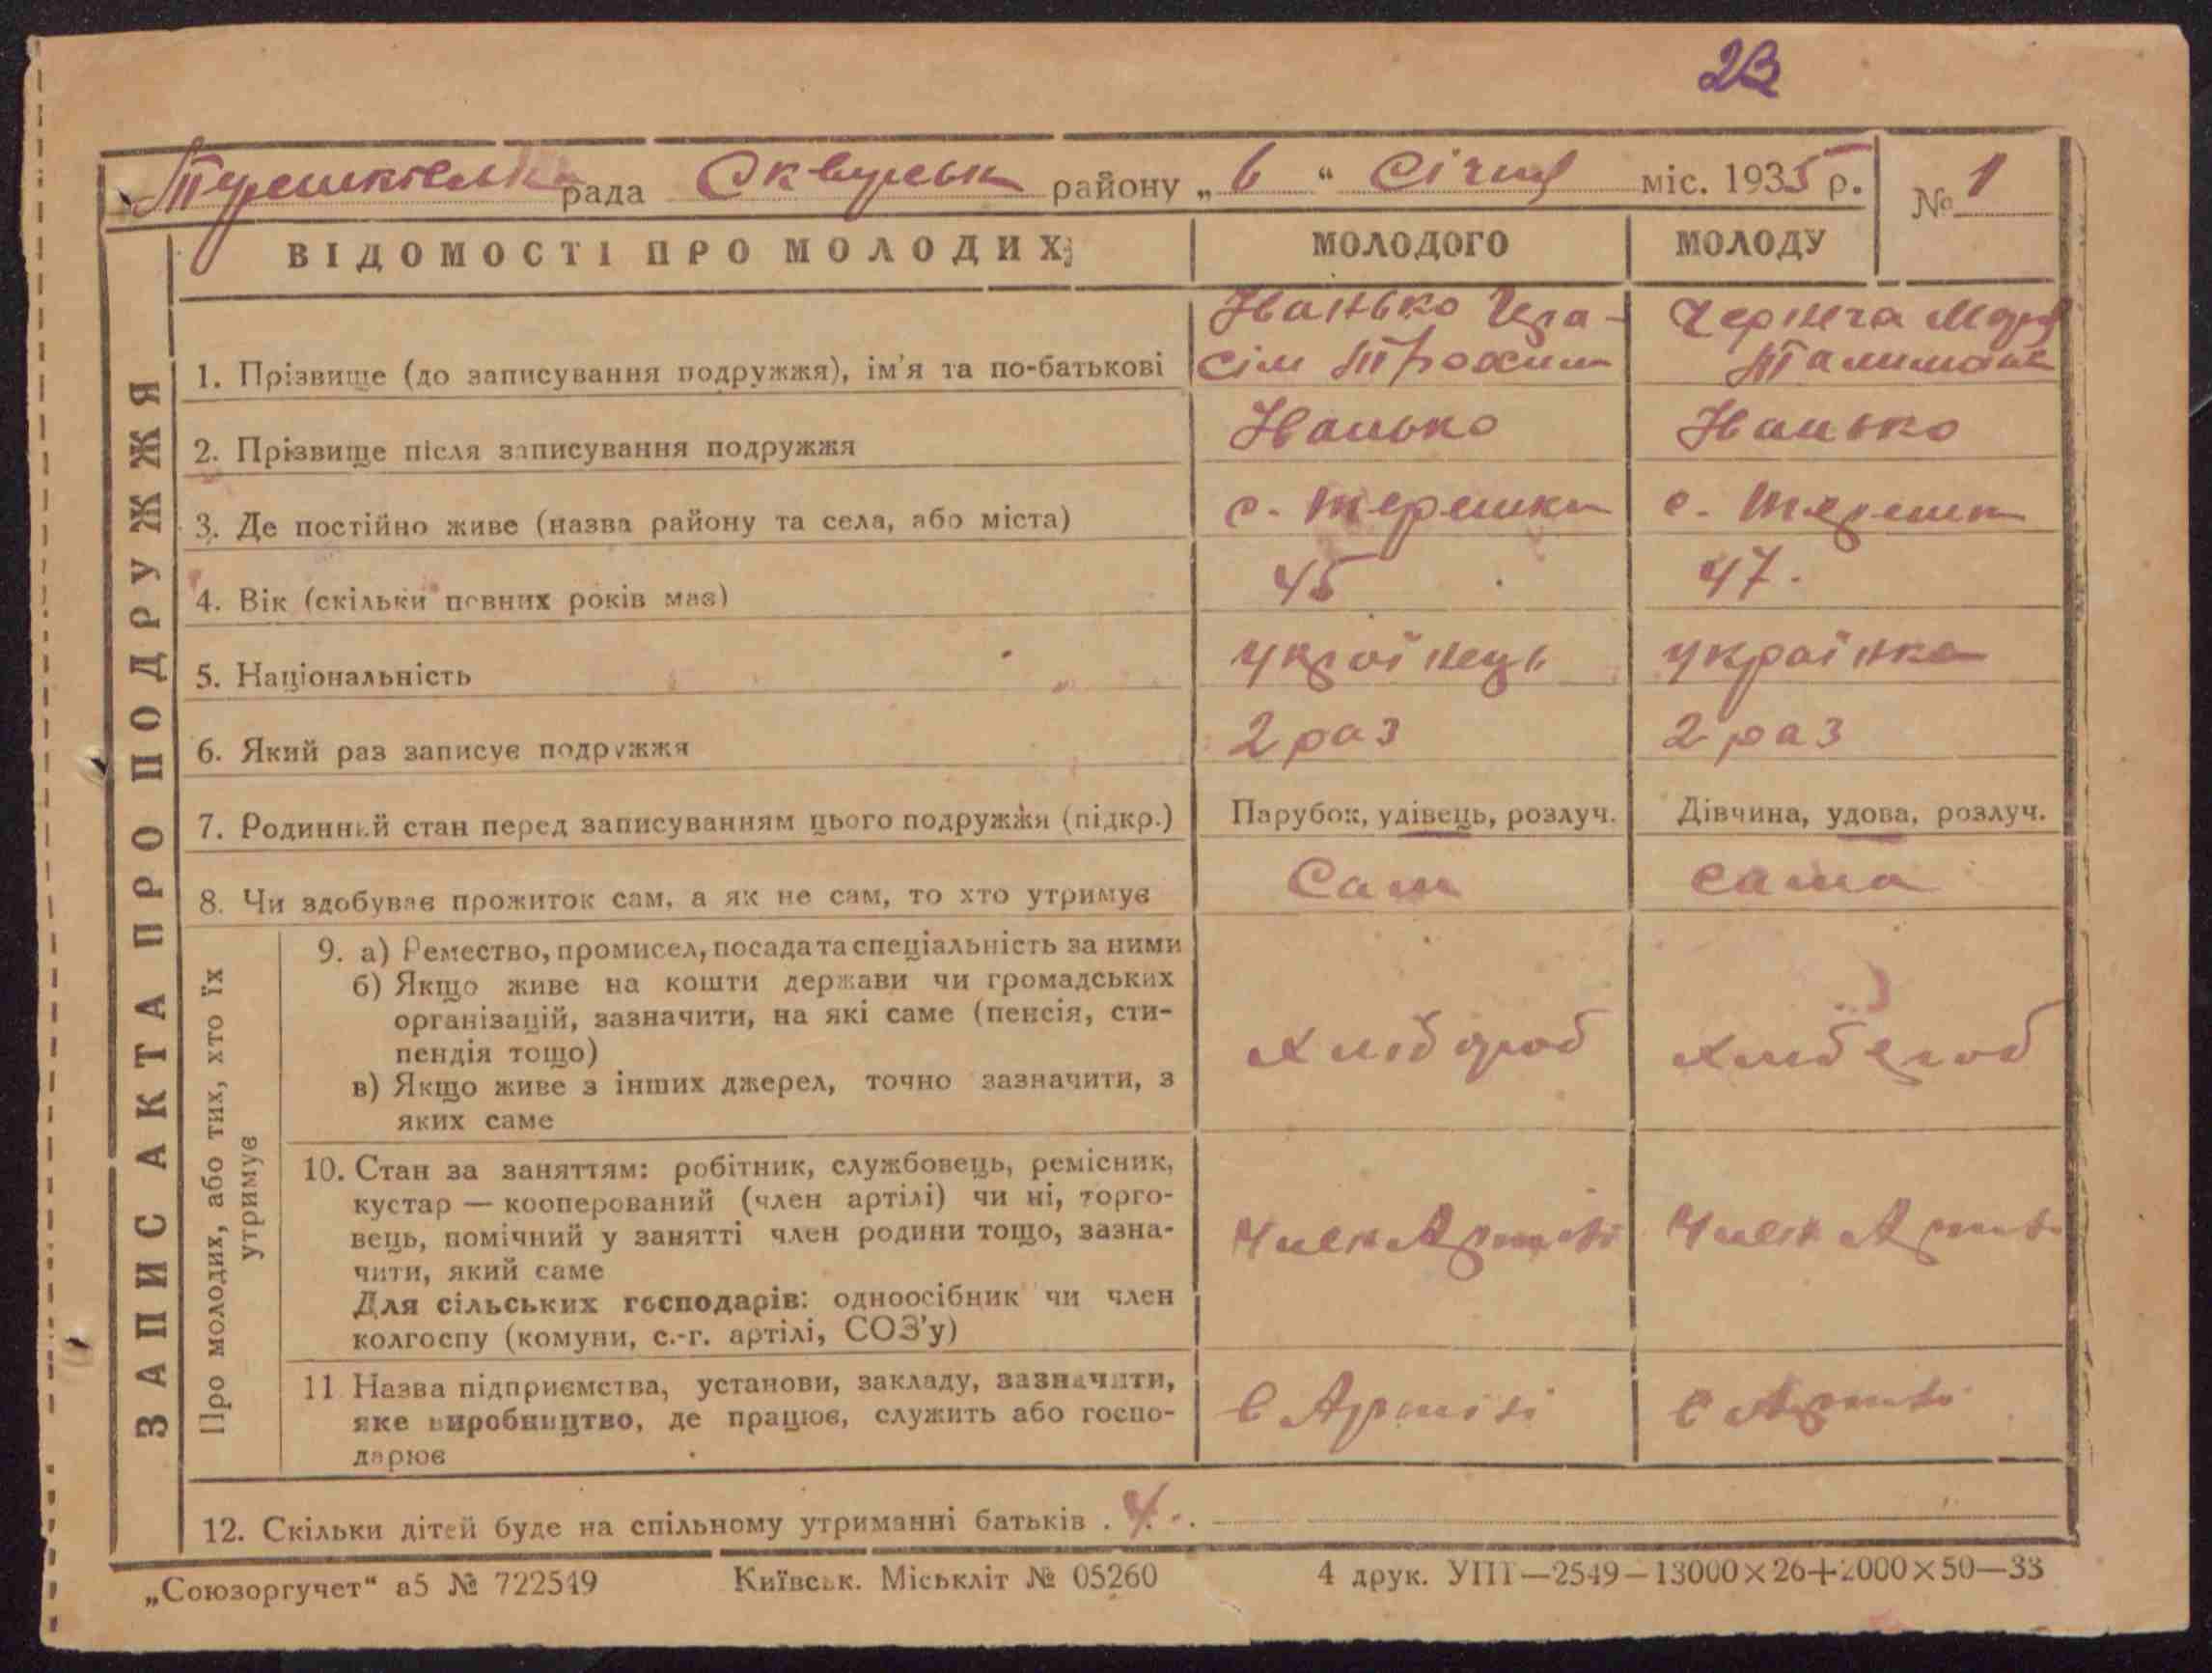 23
рада Сквирськ району „ 6 “ Січня міс. 1935 р.
№ 1
ЗАПИС АКТА ПРО ПОДРУЖЖЯ
ВІДОМОСТІ ПРО МОЛОДИХ:
МОЛОДОГО
МОЛОДУ
1. Прізвище (до записування подружжя), ім'я та по-батькові
Іванько Гера-
сім Трохим
2. Прізвище після записування подружжя
Іванько
Іванько
3. Де постійно живе (назва району та села, або міста)
с. Терешки
с. Терешк
4. Вік (скільки повних років має)
45
47.
5. Національність
українець
українка
6. Який раз записує подружжя
2 раз
2 раз
7. Родинний стан перед записуванням цього подружжя (підкр.)
Парубок, удівець, розлуч.
Дівчина, удова, розлуч.
8. Чи здобуває прожиток сам, а як не сам, то хто утримує
Сам
сама
Про молодих, або тих, хто їх
утримує
9. а) Ремество, промисел, посада та спеціальність за ними
б) Якщо живе на кошти держави чи громадських
організацій, зазначити, на які саме (пенсія, сти-
пендія тощо)
в) Якщо живе з інших джерел, точно зазначити, з
яких саме
хлібороб
хлібороб
10. Стан за заняттям: робітник, службовець, ремісник,
кустар — кооперований (член артілі) чи ні, торго-
вець, помічний у занятті член родини тощо, зазна-
чити, який саме
Для сільських господарів: одноосібник чи член
колгоспу (комуни, с.-г. артілі, СОЗ'у)
Член Артілі
Член Артілі
11 Назва підприємства, установи, закладу, зазначити,
яке виробництво, де працює, служить або госпо-
дарює
в Артілі
в Артілі
12. Скільки дітей буде на спільному утриманні батьків . 4 . .
„Союзоргучет“ а5 № 722549
Київськ. Міськліт № 05260
4 друк. УПП—2549—13000×26+2000×50—33